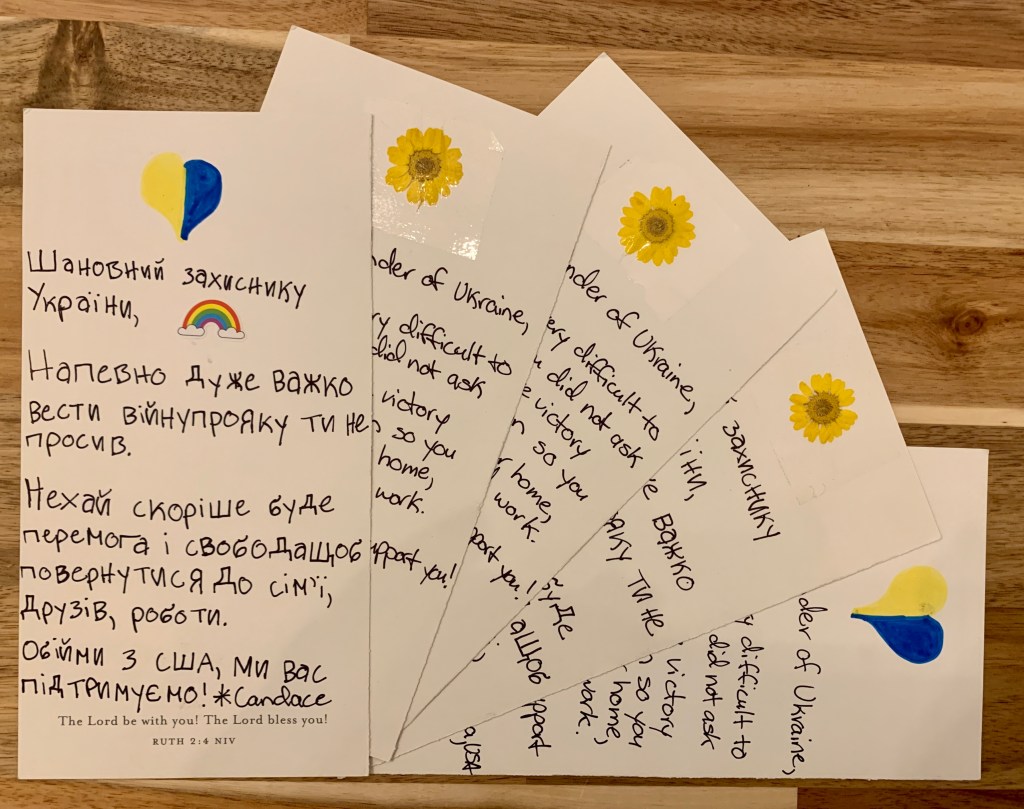 Шановний захиснику
України,
Напевно дуже важко
вести війнупрояку ти не
просив.
Нехай скоріше буде
перемога і свободащоб
повернутися до сім'ї,
друзів, роботи.
Обійми з США, ми вас
підтримуємо! *Candace
The Lord be with you! The Lord bless you!
RUTH 2:4 NIV
nder of Ukraine,
ry difficult to
did not ask
victory
so you
home,
work.
upport you!
nder of Ukraine,
ery difficult to
did not ask
e victory
n so you
home,
work.
port you!
захиснику
їни,
е важко
яку ти не
буде
ащоб
der of Ukraine,
y difficult to
did not ask
victory
so you
home,
work.
pport
a, USA